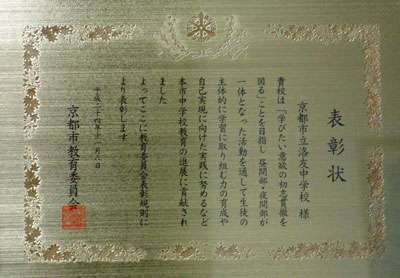 表彰状
京都市立洛友中学校 様
貴校は「学びたい意欲の初志貫徹を
図る」ことを目指し 昼間部・夜間部が
一体となった活動を通して生徒の
主体的に学習に取り組む力の育成や
自己実現に向けた実践に努めるなど
本市中学校教育の進展に貢献され
ました
よってここに教育委員会表彰規則に
より表彰します
平成二十四年十一月六日
京都市教育委員会